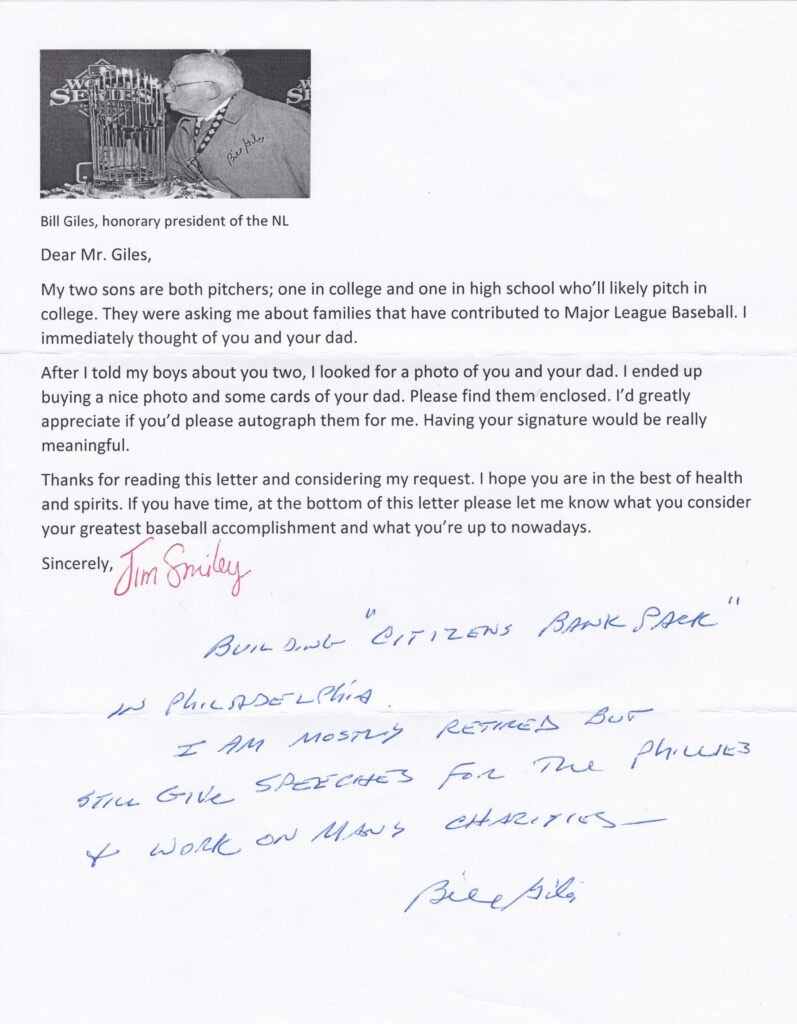 WORLD
SERIES
W
SE
Bill Giles
Bill Giles, honorary president of the NL
Dear Mr. Giles,
My two sons are both pitchers; one in college and one in high school who'll likely pitch in
college. They were asking me about families that have contributed to Major League Baseball. I
immediately thought of you and your dad.
After I told my boys about you two, I looked for a photo of you and your dad. I ended up
buying a nice photo and some cards of your dad. Please find them enclosed. I'd greatly
appreciate if you'd please autograph them for me. Having your signature would be really
meaningful.
Thanks for reading this letter and considering my request. I hope you are in the best of health
and spirits. If you have time, at the bottom of this letter please let me know what you consider
your greatest baseball accomplishment and what you're up to nowadays.
Sincerely, Jim Smiley
BUILDING "CITIZENS BANK PARK"
IN PHILADELPHIA.
I AM MOSTLY RETIRED BUT
STILL GIVE SPEECHES FOR THE PHILLIES
& WORK ON MANY CHARITIES—
Bill Giles